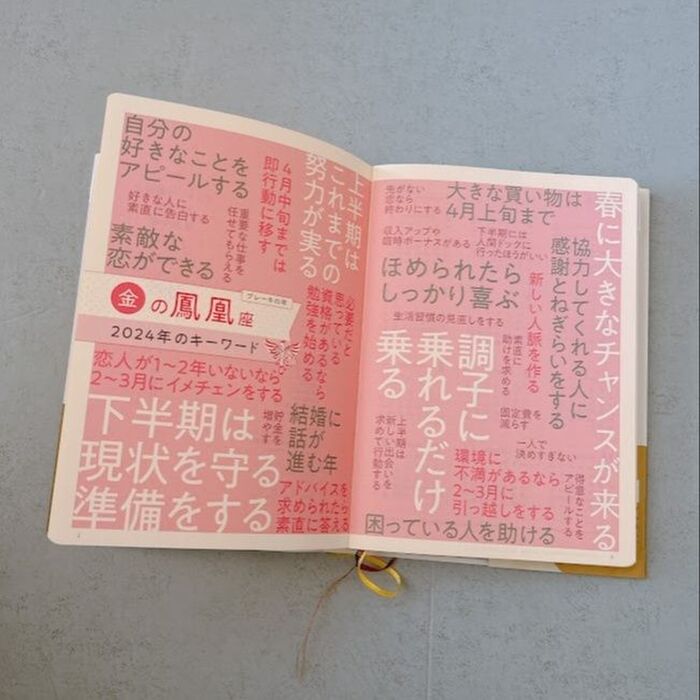 自分の
好きなことを
アピールする
好きな人に
素直に告白する
素敵な
恋ができる
重要な仕事を
任せてもらえる
4月中旬までは
即行動に移す
上半期は
これまでの
努力が実る
金の鳳凰座
ブレーキの年
2024年のキーワード
必要だと
思っている
資格があるなら
勉強を始める
恋人が1〜2年いないなら
2〜3月にイメチェンをする
下半期は
現状を守る
準備をする
貯金を
増やす
結婚に
話が
進む年
アドバイスを
求められたら
素直に答える
先がない
恋なら
終わりにする
大きな買い物は
4月上旬まで
収入アップや
臨時ボーナスがある
下半期には
人間ドックに
行ったほうがいい
ほめられたら
しっかり喜ぶ
生活習慣の見直しをする
春に大きなチャンスが来る
協力してくれる人に
感謝とねぎらいをする
新しい人脈を作る
素直に
助けを求める
調子に
乗れるだけ
乗る
固定費を
減らす
一人で
決めすぎない
上半期は
新しい出会いを
求めて行動する
環境に
不満があるなら
2〜3月に
引っ越しをする
得意なことを
アピールする
困っている人を助ける